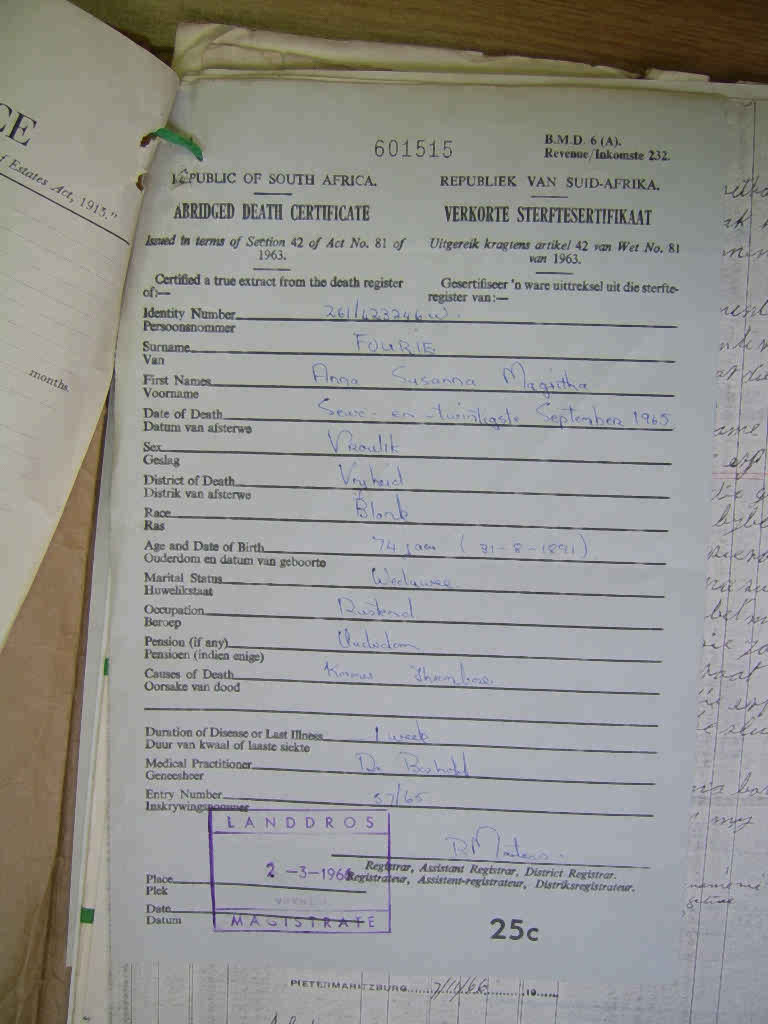 CE
f Estates Act, 1913."
months.
601515
B.M.D. 6 (A).
Revenue/Inkomste 232.
REPUBLIC OF SOUTH AFRICA.
REPUBLIEK VAN SUID-AFRIKA.
ABRIDGED DEATH CERTIFICATE
VERKORTE STERFTESERTIFIKAAT
Issued in terms of Section 42 of Act No. 81 of
1963.
Uitgereik kragtens artikel 42 van Wet No. 81
van 1963.
Certified a true extract from the death register
of:—
Gesertifiseer 'n ware uittreksel uit die sterfte-
register van:—
Identity Number 261/423246 W.
Persoonsnommer
Surname FOURIE
Van
First Names Anna Susanna Magritha
Voorname
Date of Death Sewe-en-twintigste September 1965
Datum van afsterwe
Sex Vroulik
Geslag
District of Death Vryheid
Distrik van afsterwe
Race Blank
Ras
Age and Date of Birth 74 jaar (31-8-1891)
Ouderdom en datum van geboorte
Marital Status Weduwee
Huwelikstaat
Occupation Rustend
Beroep
Pension (if any) Ouderdom
Pensioen (indien enige)
Causes of Death Thrombose
Oorsake van dood
Duration of Disease or Last Illness 1 week
Duur van kwaal of laaste siekte
Medical Practitioner Dr
Geneesheer
Entry Number 57/65
Inskrywingsnommer
LANDDROS
2 -3-196
MAGISTRATE
Registrar, Assistant Registrar, District Registrar.
Registrateur, Assistent-registrateur, Distriksregistrateur.
Place
Plek
Date
Datum
25c
PIETERMARITZBURG 7/10/66 19